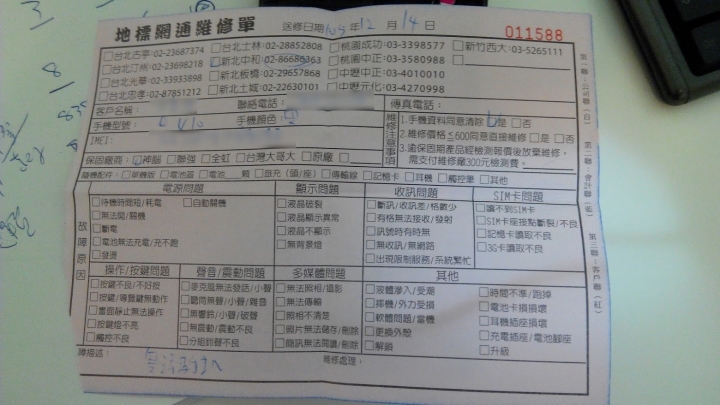 地標網通維修單 送修日期 12 月 14 日
011588
□台北古亭:02-23687374 □台北士林:02-28852808 □桃園成功:03-3398577 □新竹西大:03-5265111
□台北汀州:02-23698218 □新北中和:02-86686363 □桃園中正:03-3580988
□台北光華:02-33933898 □新北板橋:02-29657868 □中壢中正:03-4010010
□台北忠孝:02-87851212 □新北土城:02-22630101 □中壢元化:03-4270998
客戶名稱: 聯絡電話: 傳真電話:
手機型號: 手機顏色:
IMEI:
維修注意事項
1.手機資料同意清除 □是 □否
2.維修價格≦600同意直接維修 □是 □否
3.逾保固期產品經檢測報價後放棄維修,
需支付維修廠300元檢測費。
保固廠商: □神腦 □聯強 □全虹 □台灣大哥大 □原廠 □
隨機配件: □單機版 □電池蓋 □電池 顆 □旅充(頭/座) □傳輸線 □記憶卡 □耳機 □觸控筆 □其他
故障原因
電源問題 顯示問題 收訊問題 SIM卡問題
□待機時間短/耗電 □自動關機
□無法開/關機
□斷電
□電池無法充電/充不飽
□發燙
□液晶破裂
□液晶顯示異常
□液晶不顯示
□無背景燈
□斷訊/收訊差/格數少
□有格無法接收/發射
□訊號時有時無
□無收訊/無網路
□出現限制服務/系統繁忙
□讀不到SIM卡
□SIM卡座接點斷裂/不良
□記憶卡讀取不良
□3G卡讀取不良
操作/按鍵問題 聲音/震動問題 多媒體問題 其他
□按鍵不良/不好按
□按鍵/導覽鍵無動作
□畫面靜止無法操作
□按鍵燈不亮
□觸控不良
□麥克風無法發話/小聲
□聽筒無聲/小聲/雜音
□無響鈴/小聲/破聲
□無震動/震動不良
□分組鈴聲不良
□無法照相/攝影
□無法傳輸
□照相不清楚
□照片無法儲存/刪除
□簡訊無法閱讀/刪除
□液體滲入/受潮
□摔機/外力受損
□軟體問題/當機
□更換外殼
□解鎖
□時間不準/跑掉
□電池卡損損壞
□耳機插座損壞
□充電插座/電池腳座
□升級
障描述: 維修處理: